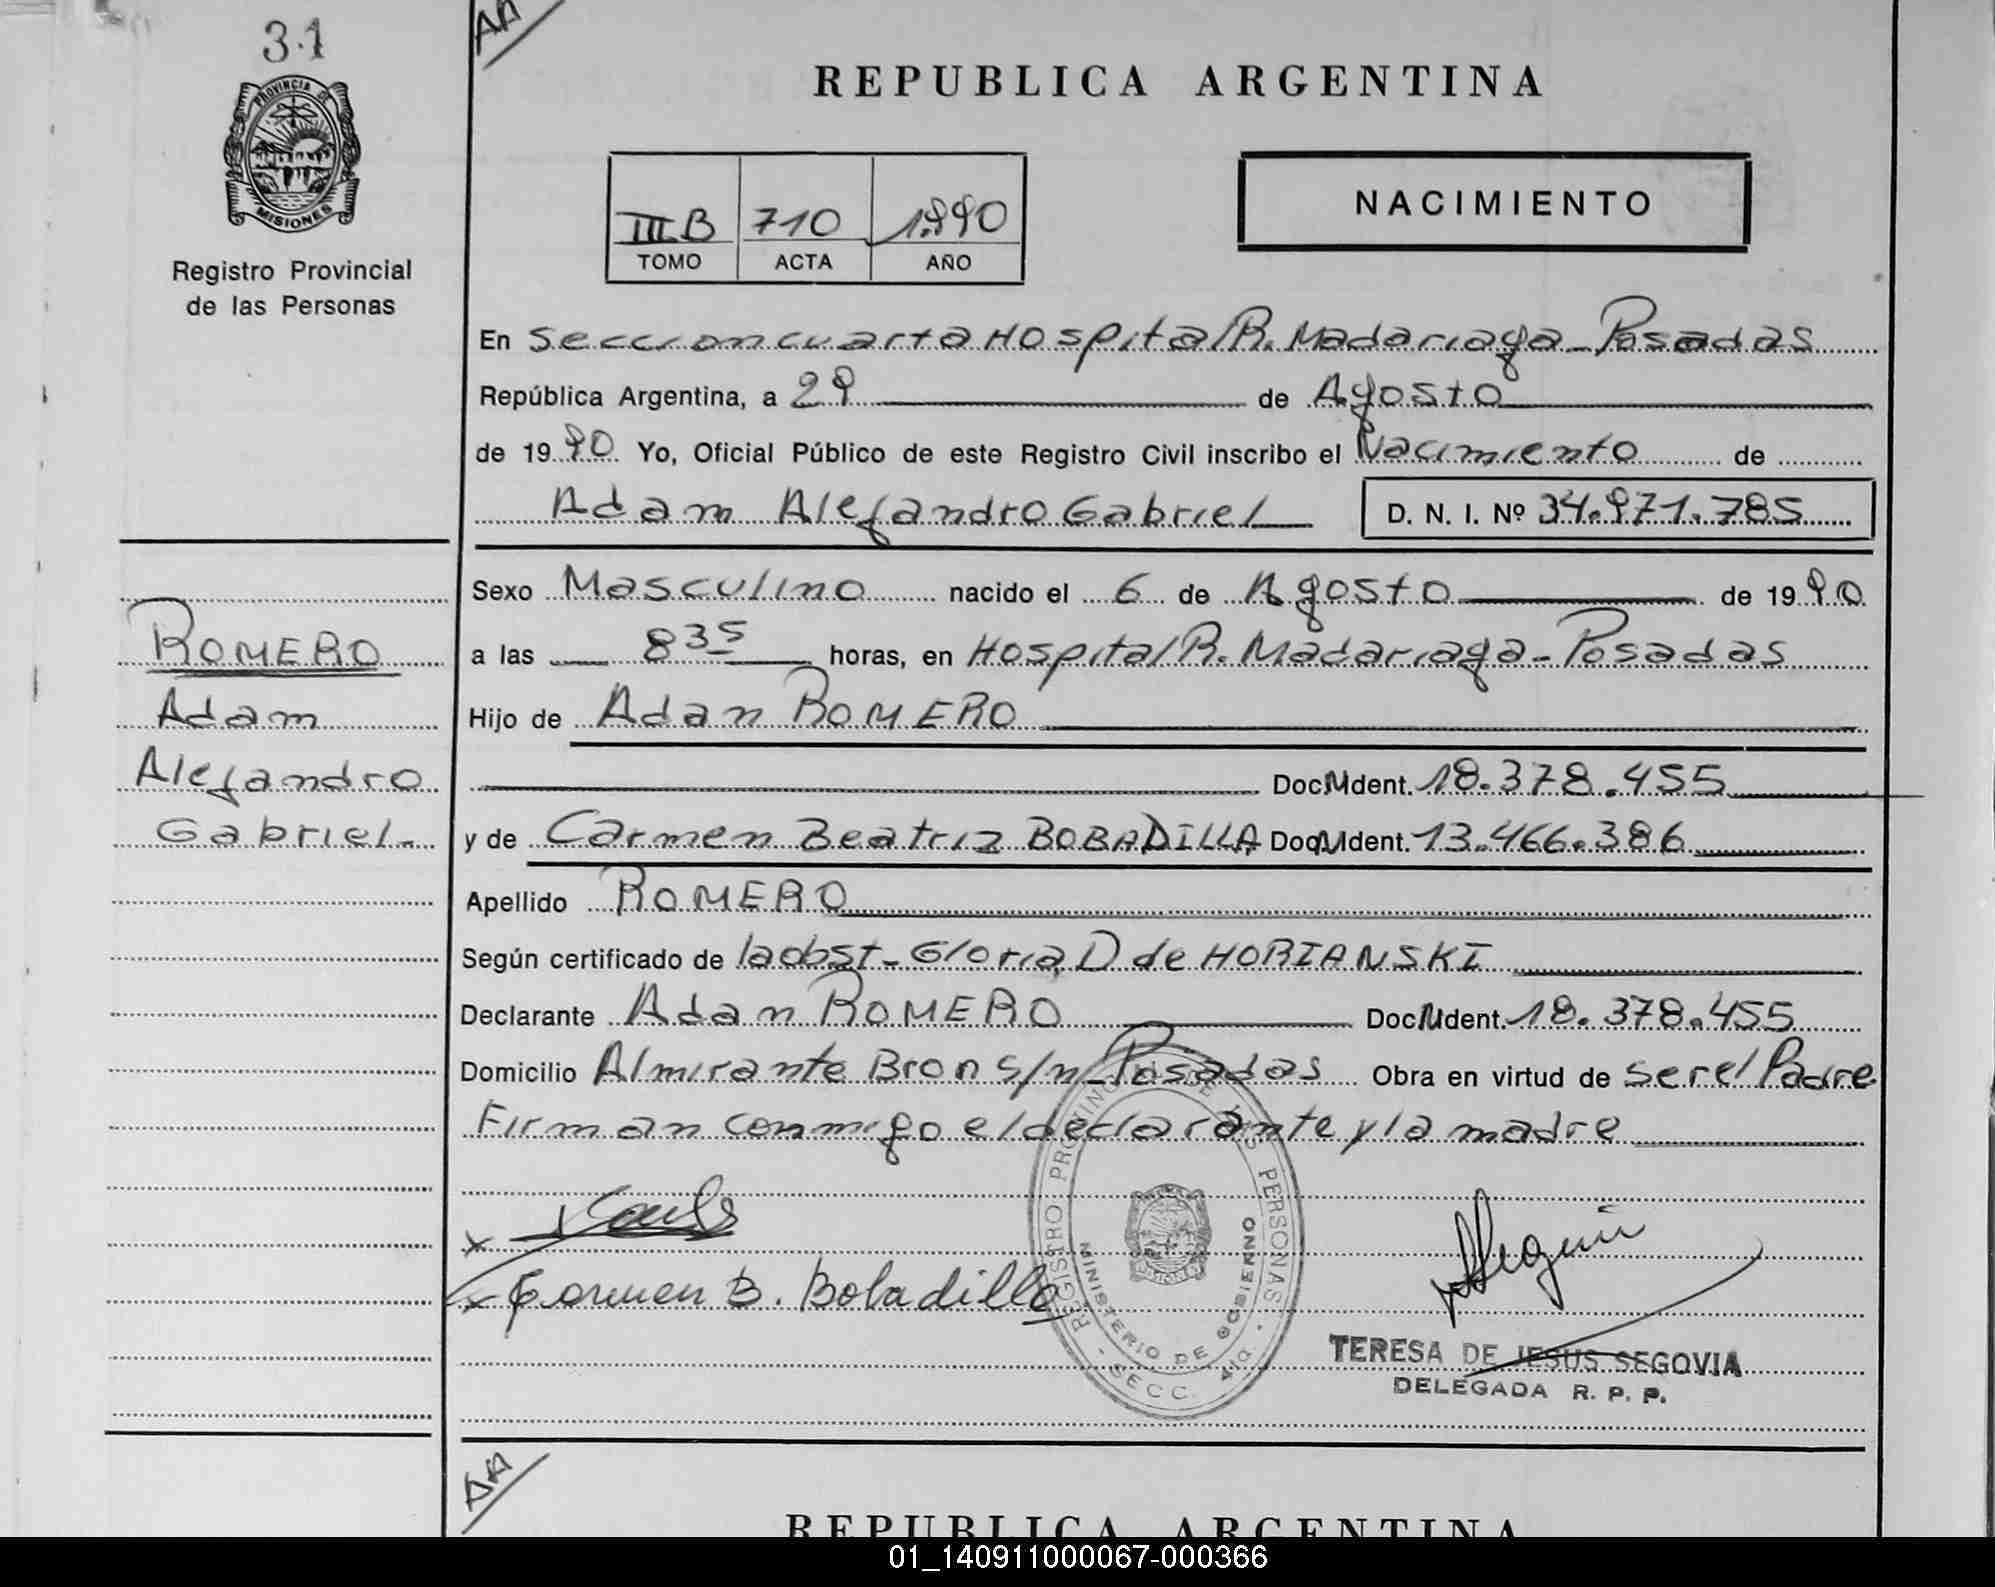 31
AA
REPUBLICA ARGENTINA
PROVINCIA DE
MISIONES
Registro Provincial
de las Personas
III B 710 1.990
TOMO ACTA AÑO
NACIMIENTO
En Seccion cuarta Hospital R. Madariaga - Posadas
República Argentina, a 29 de Agosto
de 1990 Yo, Oficial Público de este Registro Civil inscribo el Nacimiento de
Adam Alejandro Gabriel D. N. I. Nº 34.971.785
Sexo Masculino nacido el 6 de Agosto de 1990
a las 8 35 horas, en Hospital R. Madariaga - Posadas
Hijo de Adan ROMERO
Doc. Ident. 18.378.455
y de Carmen Beatriz BOBADILLA Doc. Ident. 13.466.386
Apellido ROMERO
Según certificado de la obst - Gloria D de HORIANSKI
Declarante Adan ROMERO Doc. Ident. 18.378.455
Domicilio Almirante Bron s/n - Posadas Obra en virtud de ser el Padre
Firman conmigo el declarante y la madre
ROMERO
Adam
Alejandro
Gabriel.-
x
x Carmen B. Bobadilla
REGISTRO PROVINCIAL DE LAS PERSONAS
MINISTERIO DE GOBIERNO
- SECC. 4ta. -
TERESA DE JESUS SEGOVIA
DELEGADA R. P. P.
AA
REPUBLICA ARGENTINA
01_140911000067-000366